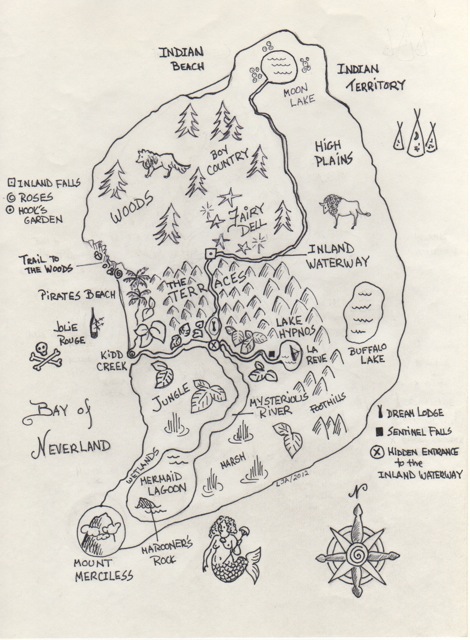 INDIAN
BEACH
INDIAN
TERRITORY
MOON
LAKE
BOY
COUNTRY
HIGH
PLAINS
INLAND FALLS
ROSES
HOOK'S
GARDEN
WOODS
FAIRY
DELL
TRAIL TO
THE WOODS
INLAND
WATERWAY
THE TERRACES
PIRATES BEACH
JOLIE
ROUGE
LAKE
HYPNOS
LA
REVE
BUFFALO
LAKE
KIDD
CREEK
JUNGLE
MYSTERIOUS
RIVER
FOOTHILLS
BAY of
NEVERLAND
DREAM LODGE
SENTINEL FALLS
HIDDEN ENTRANCE
to the
INLAND WATERWAY
WETLANDS
MERMAID
LAGOON
MARSH
LJA/2012
N
MAROONER'S
ROCK
MOUNT
MERCILESS